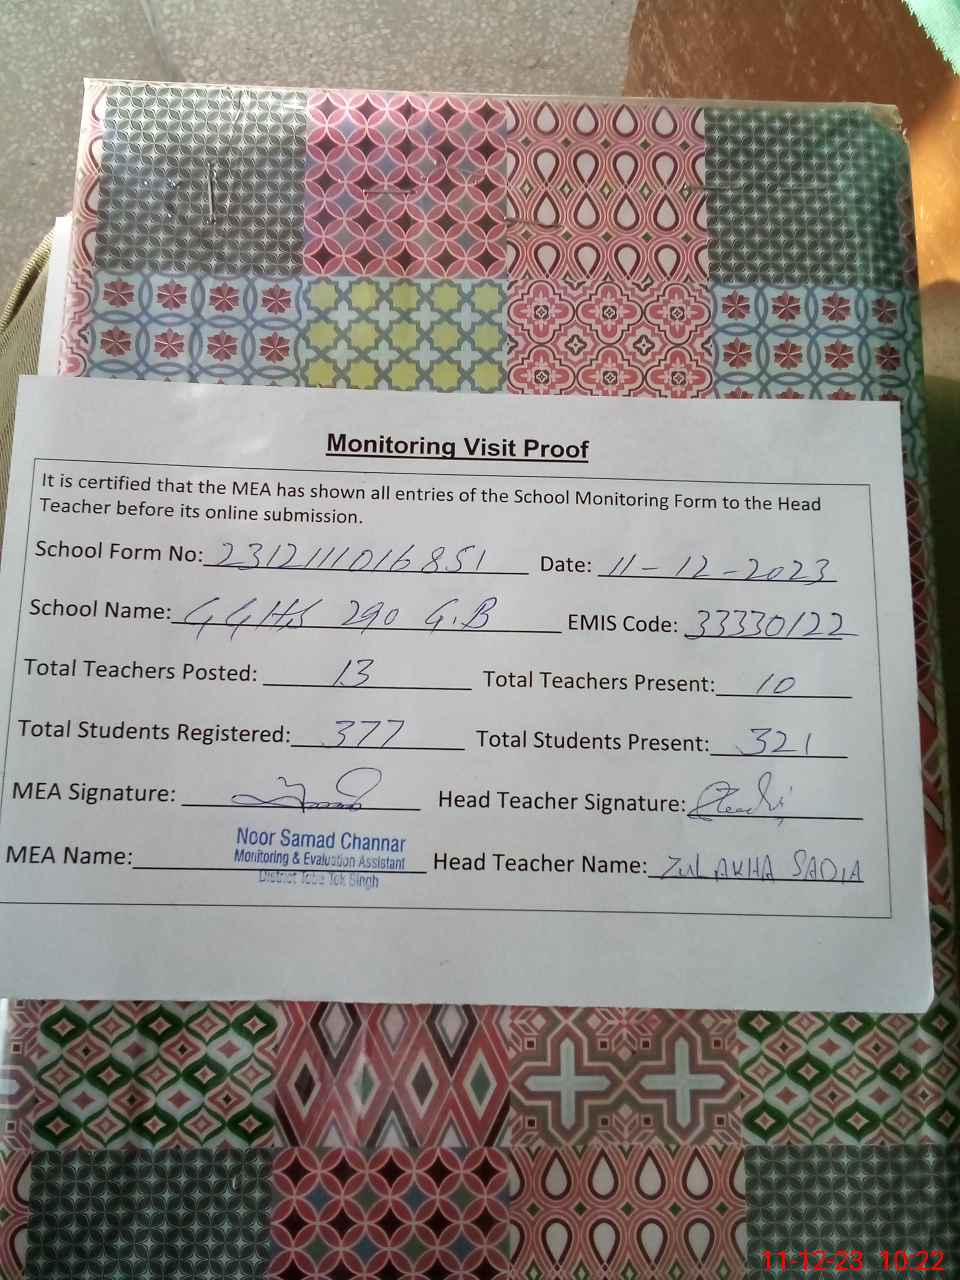 Monitoring Visit Proof
It is certified that the MEA has shown all entries of the School Monitoring Form to the Head
Teacher before its online submission.
School Form No: 2312111016851 Date: 11-12-2023
School Name: GGHS 290 G.B EMIS Code: 33330122
Total Teachers Posted: 13 Total Teachers Present: 10
Total Students Registered: 377 Total Students Present: 321
MEA Signature: Head Teacher Signature:
Noor Samad Channar
Monitoring & Evaluation Assistant
MEA Name: Head Teacher Name: ZULAKHA SADIA
District Toba Tek Singh
11-12-23 10:22